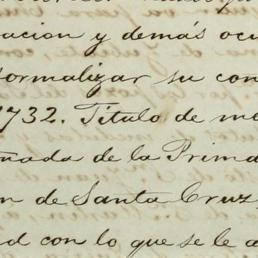 acion y demás ocu
formalizar su con
1732. Título de me
nada de la Prima
n de Santa Cruz,
d con lo que se le a